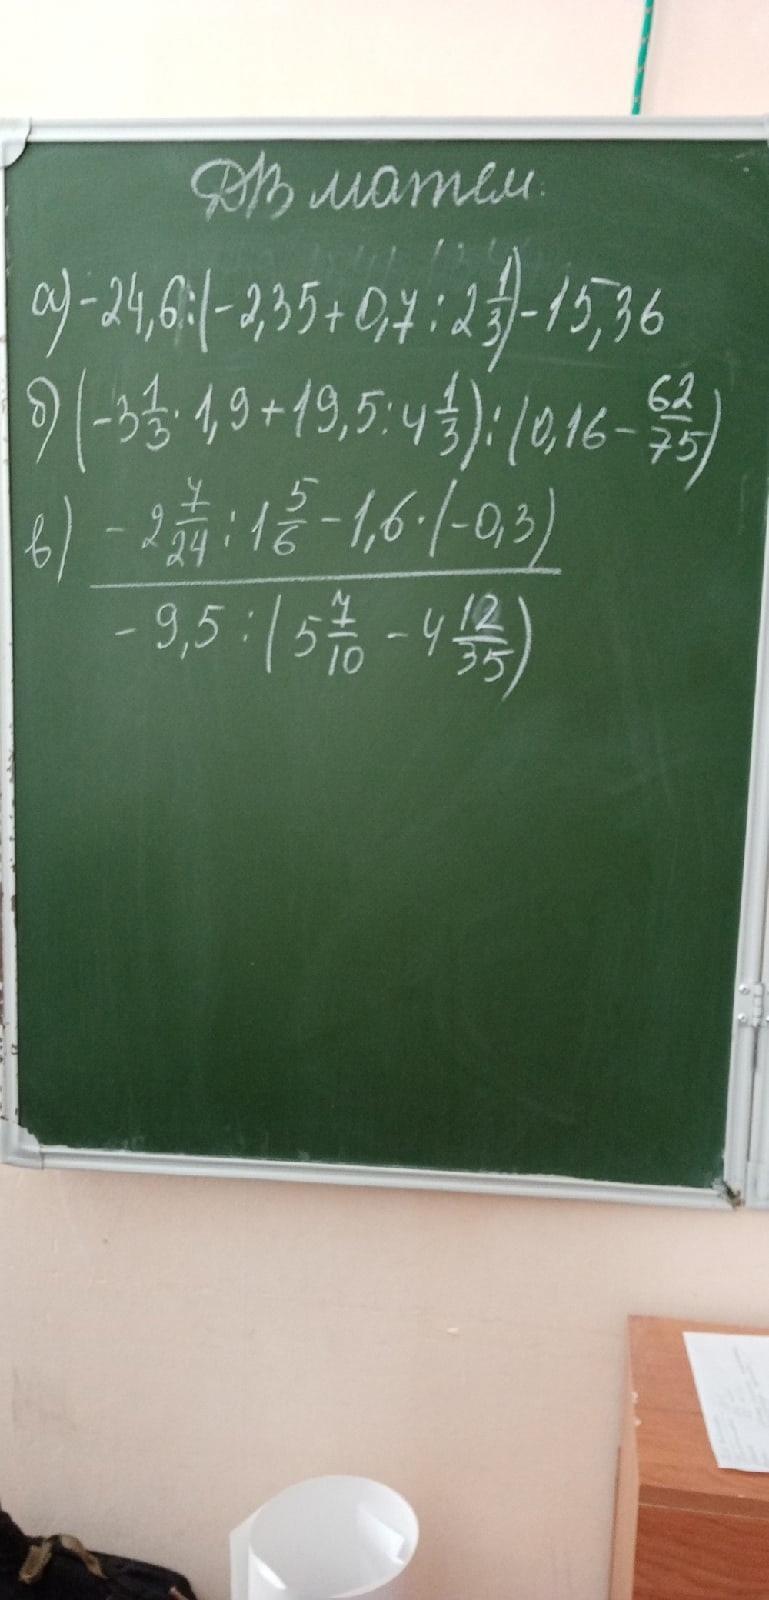 ДВ матем.
а) -24,6:(-2,35+0,7:2 1/3)-15,36
б) (-3 1/3·1,9+19,5:4 1/3):(0,16-62/75)
в) -2 7/24:1 5/6-1,6·(-0,3)
-9,5:(5 7/10-4 12/35)